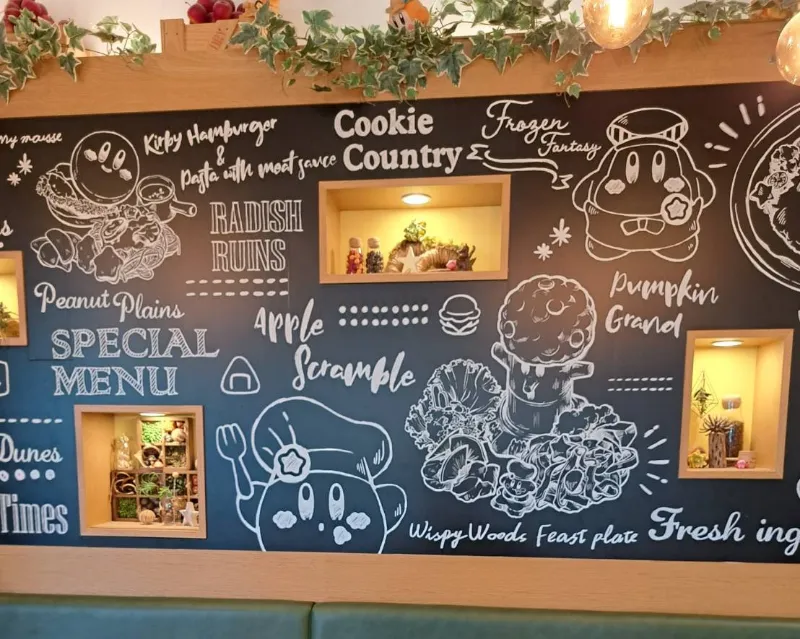 my mousse
Kirby Hamburger
&
Pasta with meat sauce
Cookie
Country
Frozen
Fantasy
RADISH
RUINS
Peanut Plains
SPECIAL
MENU
Apple
Scramble
Pumpkin
Grand
Dunes
Times
Wispy Woods Feast plate
Fresh ing